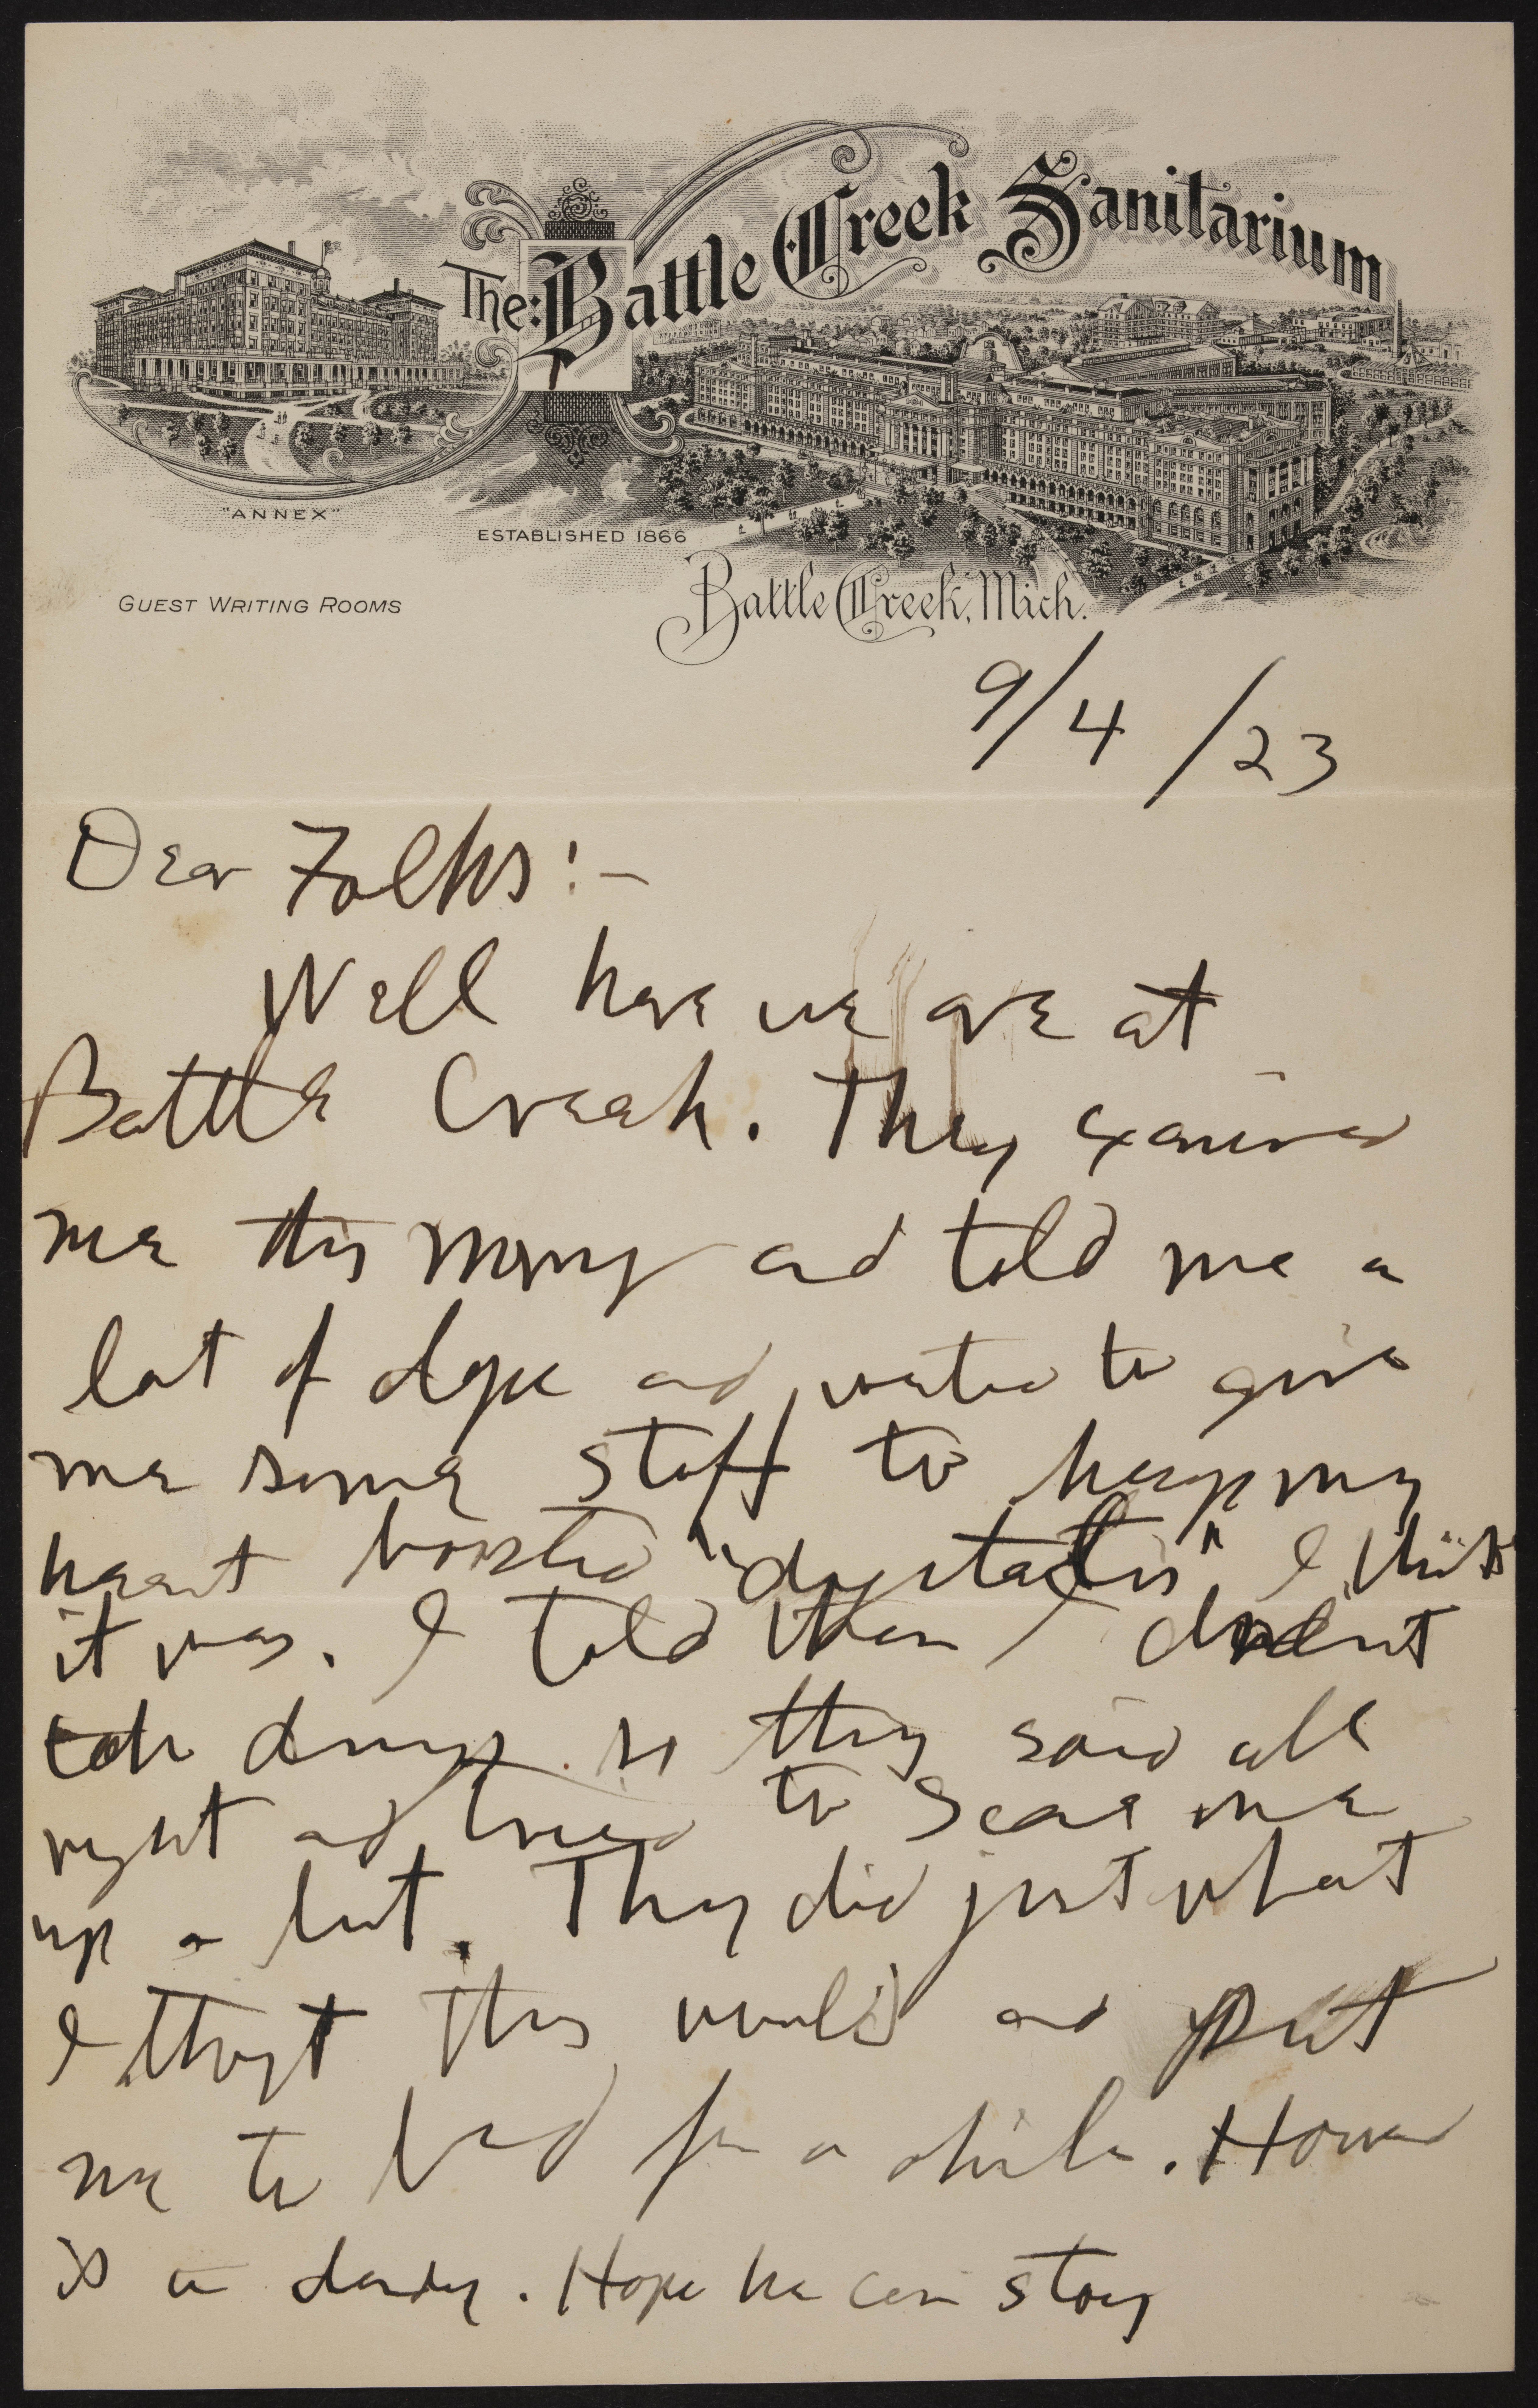 The Battle Creek Sanitarium
"ANNEX"
ESTABLISHED 1866
GUEST WRITING ROOMS
Battle Creek, Mich.
9/4/23
Dear Folks:-
Well here we are at
Battle Creek. They examined
me this morning and told me a
lot of dope and wanted to give
me some stuff to keep my
heart boosted "digitalis" I think
it was. I told them I didn't
take drugs so they said all
right and tried to scare me
up a bit. They did just what
I thought they would and put
me to bed for a while. Howard
is a dandy. Hope he can stay